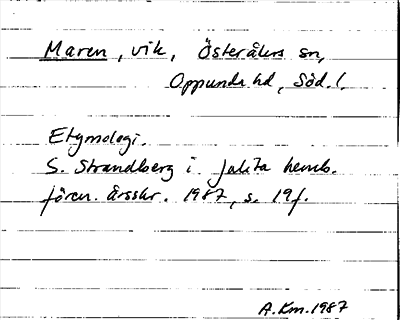 Maren, vik, Österåkers sn,
Oppunda hd, Söd. l.
Etymologi.
S. Strandberg i Julita hemb.
fören. årsskr. 1987, s. 19f.
A.Km. 1987